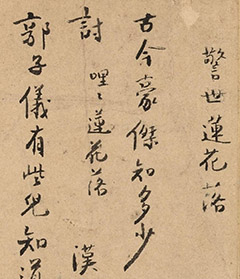 警世蓮花落
古今豪傑知多少
討 哩〻蓮花落 漢
郭子儀有些兒知道